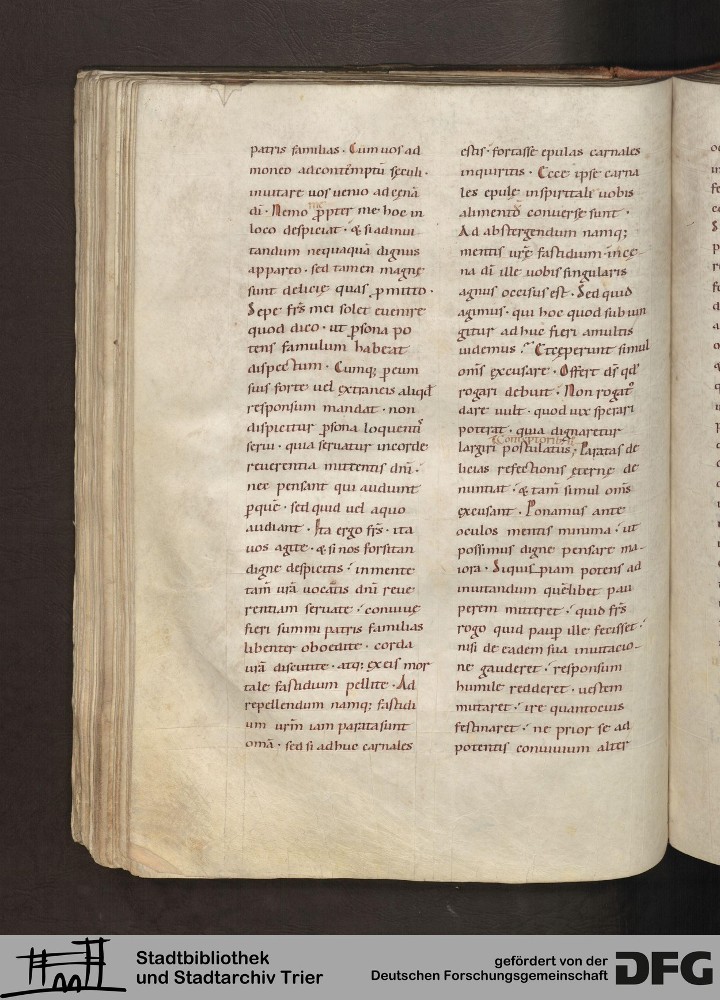 patris familias · Cum uos ad
moneo ad contēptū sęculi ·
inuitare uos uenio ad cęnā
dī · Nemo ꝓpter me hoc in
loco despiciat · & si ad inui
tandum nequaquā dignus
appareo · sed tamen magnę
sunt delicię quas ꝓmitto ·
Sepe frs̄ mei solet euenire
quod dico · ut ꝑsona po
tens famulum habeat
dispectum · Cumq; ꝑ eum
suis forte uel extraneis aliqd
responsum mandat · non
dispicitur ꝑsona loquentis
serui · quia seruatur in corde
reuerentia mittentis dnī ·
nec pensant qui audiunt
ꝑ quē · sed quid uel a quo
audiant · Ita ergo frs̄ · ita
uos agite · & si nos forsitan
digne despicitis · in mente
tam̄ urā uocantis dnī reue
rentiam seruate · conuiuę
fieri summi patris familias
libenter oboedite · corda
urā discutite · atq; ex eis mor
tale fastidium pellite · Ad
repellendum namq; fastidi
um urm̄ iam parata sunt
omā · sed si adhuc carnales
estis · fortasse epulas carnales
inquiritis · Ecce ipsę carna
les epulę in spiritale uobis
alimentū conuersę sunt ·
Ad abstergendum namq;
mentis urę fastidium · in cę
na dī ille uobis singularis
agnus occisus est · Sed quid
agimus · qui hoc quod subiun
gitur adhuc fieri a multis
uidemus · Et cęperunt simul
oms̄ excusare · Offert ds̄ qd'
rogari debuit · Non rogatus
dare uult · quod uix sperari
poterat · quia dignaretur
largiri postulatus; Paratas de
licias refectionis ęternę de
nuntiat · & tam̄ simul oms̄
excusant · Ponamus ante
oculos mentis minima · ut
possimus digne pensare ma-
iora · Si quispiam potens ad
inuitandum quēlibet pau
perem mitteret · quid frs̄
rogo quid paup ille fecisset ·
nisi de eadem sua inuitatio-
ne gauderet · responsum
humile redderet · uestem
mutaret · ire quantocius
festinaret · ne prior se ad
potentis conuiuium alter
Stadtbibliothek
und Stadtarchiv Trier
gefördert von der
Deutschen Forschungsgemeinschaft
DFG